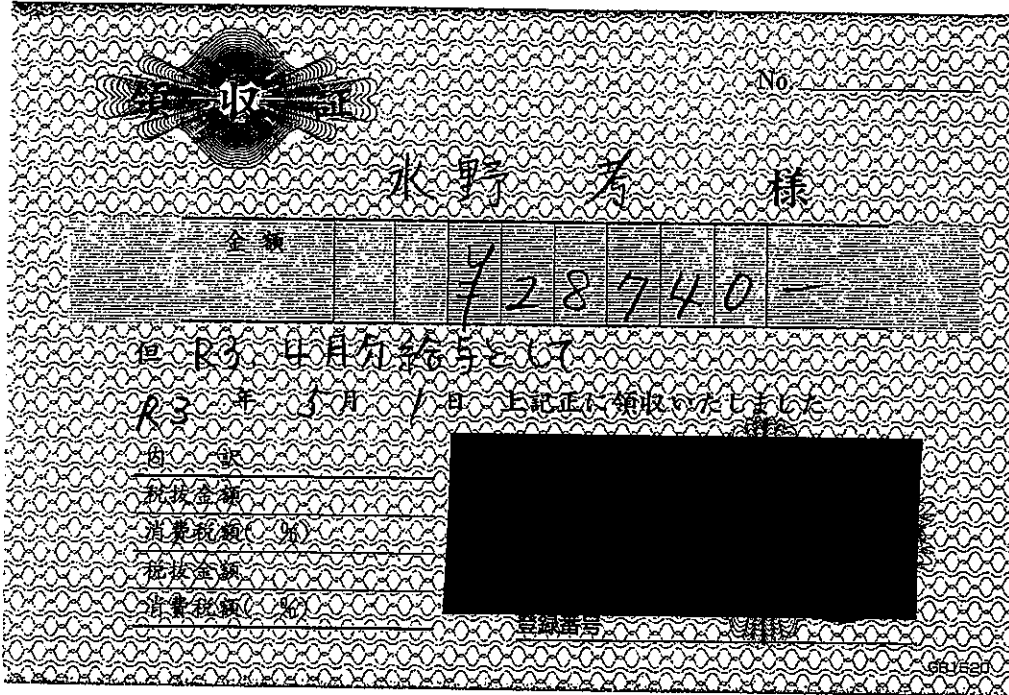 領収証
No.
水野 考 様
金額
¥28740-
但 R3 4月分給与として
R3年 5月 1日 上記正に領収いたしました
内 訳
税抜金額
消費税額( %)
税抜金額
消費税額( %)
登録番号
GB1520